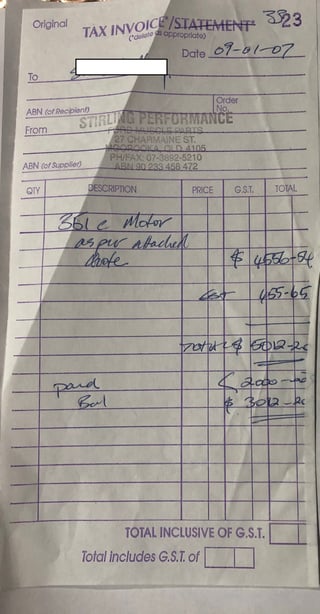 Original
TAX INVOICE*/STATEMENT*
(*delete as appropriate)
3823
Date 09-01-07
To
ABN (of Recipient)
Order No.
From
STIRLING PERFORMANCE
FORD MUSCLE PARTS
27 CHARMAINE ST.
MOOROOKA, QLD 4105
PH/FAX: 07-3892-5210
ABN (of Supplier)
ABN 90 233 458 472
QTY DESCRIPTION PRICE G.S.T. TOTAL
351 c Motor
as per attached
$ 4556-54
GST 455-65
Total $ 5012-20
paid 2000-00
Bal $ 3012-20
TOTAL INCLUSIVE OF G.S.T.
Total includes G.S.T. of